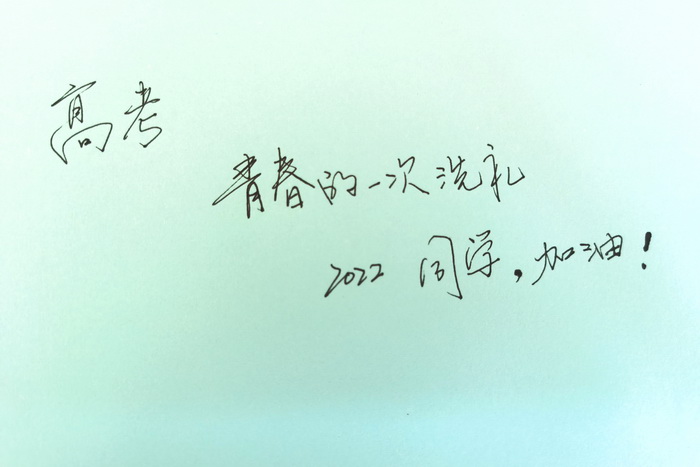 高考
青春的一次洗礼
2022 同学，加油！